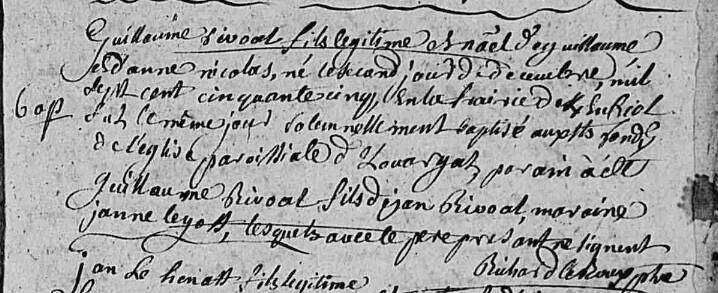 Guillaume Rivoal fils legitime et nãel de guillaume
et d'anne nicolas, né le second jour de decembre, mil
sept cent cinquante cinq, en la frairie de
fut le même jour solemnellement baptisé aux sts fonds
de l'eglise paroissiale de Louargat, parain à été
guillaume Rivoal fils de jan Rivoal, maraine
janne lesquels avec le pere present ne signent
Richard ptre
jan le fils legitime